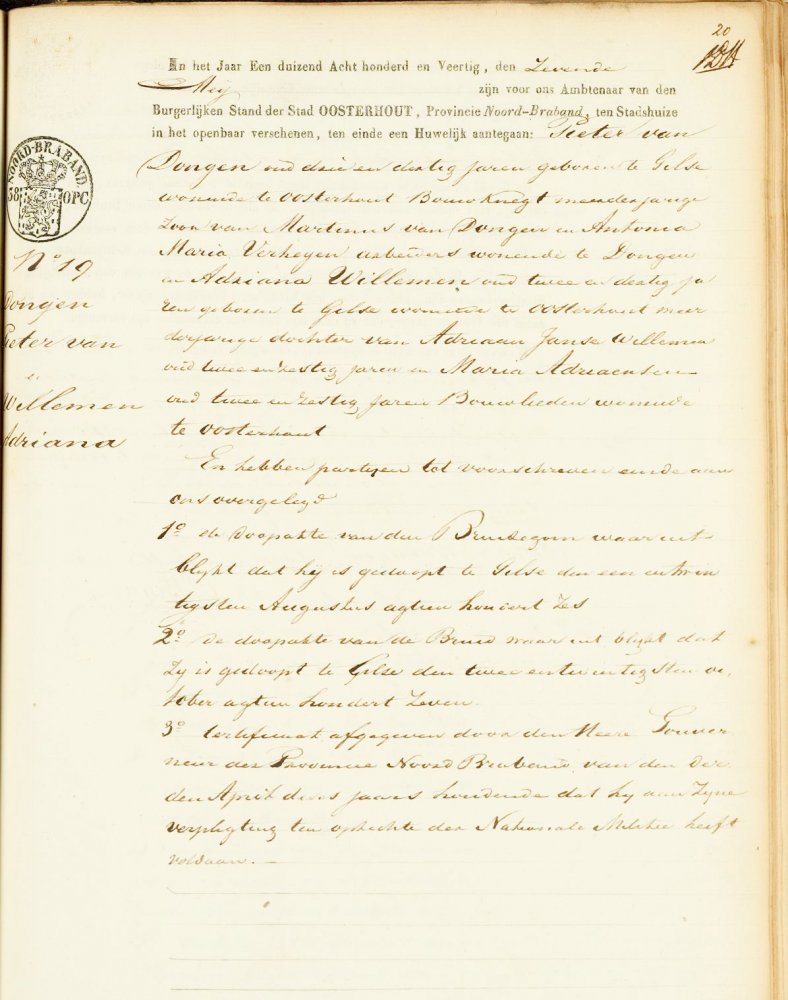 20
In het Jaar Een duizend Acht honderd en Veertig, den Zevende
Mey zijn voor ons Ambtenaar van den
Burgerlijken Stand der Stad OOSTERHOUT, Provincie Noord-Braband, ten Stadshuize
in het openbaar verschenen, ten einde een Huwelijk aantegaan: Pieter van
Dongen oud drie en dertig jaren geboren te Gilse
wonende te Oosterhout Bouwknegt meerderjarige
Zoon van Martinus van Dongen en Antonia
Maria Verhegen arbeiders wonende te Dongen
en Adriana Willemen oud twee en dertig ja
ren geboren te Gilse wonende te Oosterhout meer
derjarige dochter van Adriaan Janse Willemen
oud twee en zestig jaren en Maria Adriaensen
oud twee en zestig jaren Bouwlieden wonende
te Oosterhout
En hebben partijen tot voorschreven einde aan
ons overgelegd
1o de doopakte van den Bruidegom waar uit
blykt dat hy is gedoopt te Gilse den een en twin
tigsten Augustus agtien hondert zes
2o de doopakte van de Bruid waar uit blykt dat
Zy is gedoopt te Gilse den twee en twintigsten oc
tober agtien hondert Zeven.
3o Certificaat afgegeven door den Heere Gouver
neur der Provincie Noord Braband van den der
den April dezes jaars houdende dat hy aan Zyne
verpligting ten opzichte der Nationale Militie heeft
voldaan.
NOORD-BRABAND.
38 OPC.
No 19
Dongen
Pieter van
en
Willemen
Adriana